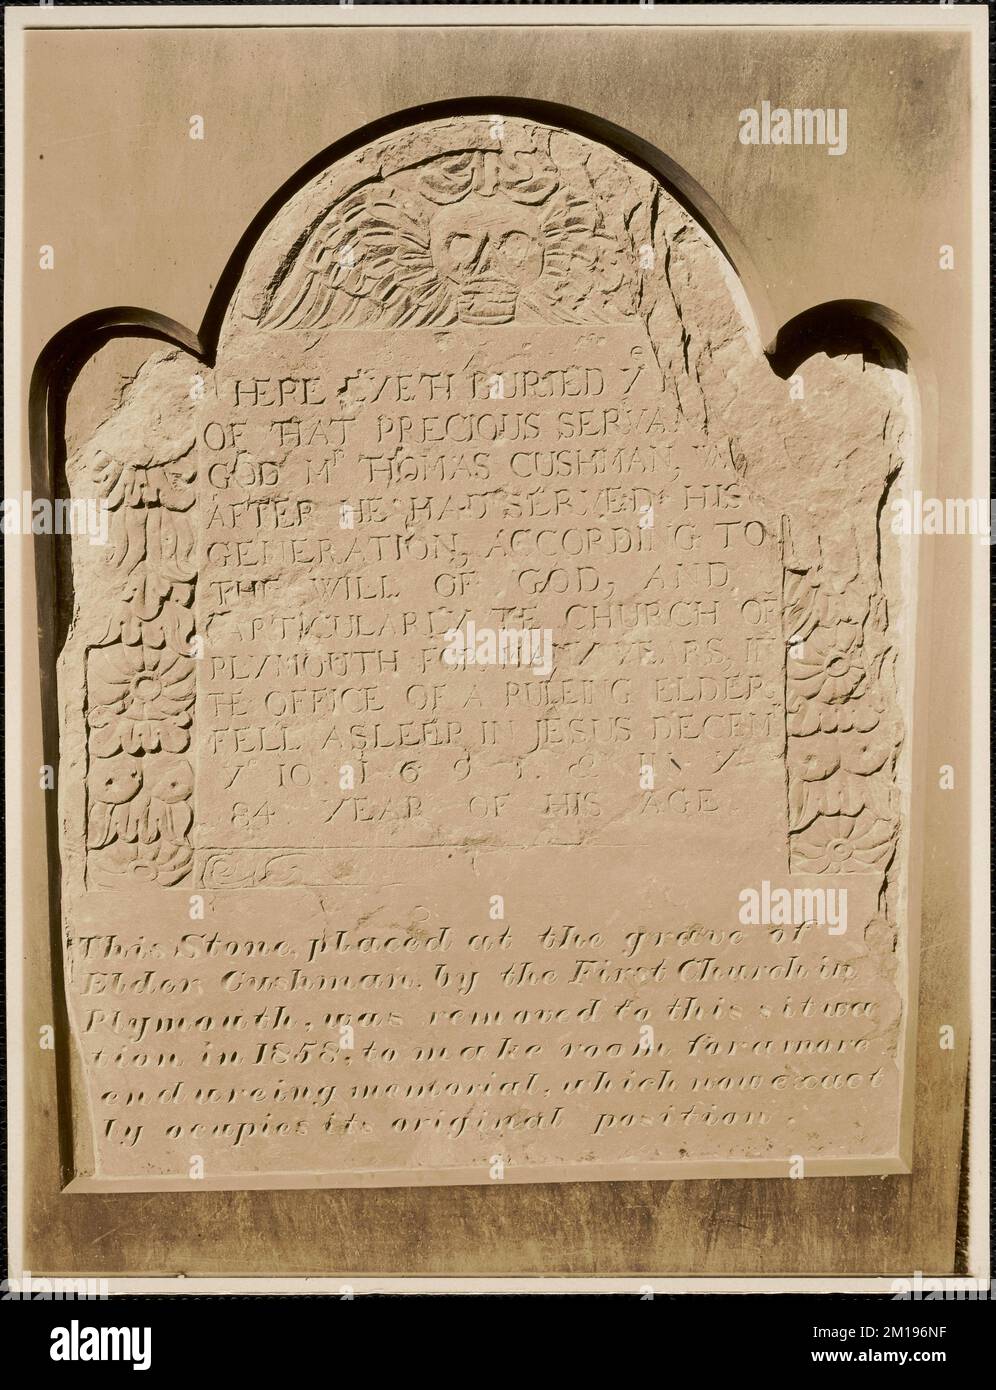 HERE LYETH BURIED Yᵉ
OF THAT PRECIOUS SERVA
GOD Mʳ THOMAS CUSHMAN,
AFTER HE HAD SERVED HIS
GENERATION, ACCORDING TO
THE WILL OF GOD, AND
PARTICULARLY TE CHURCH OF
PLYMOUTH FOR MANY YEARS, IN
TE OFFICE OF A RULEING ELDER
FELL ASLEEP IN JESUS DECEM
Yᵉ 10. 1691. & IN Y
84 YEAR OF HIS AGE
This Stone, placed at the grave of
Elder Cushman, by the First Church in
Plymouth, was removed to this sitwa
tion in 1858, to make room for a more
endureing memorial, which now exact
ly ocupies its original position.
alamy
alamy
Image ID: 2M196NF
www.alamy.com